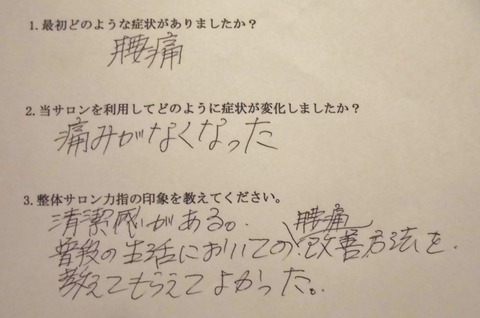 1.最初どのような症状がありましたか？
腰痛
2.当サロンを利用してどのように症状が変化しましたか？
痛みがなくなった
3.整体サロン力指の印象を教えてください。
清潔感がある。
普段の生活においての腰痛改善方法を
教えてもらえてよかった。